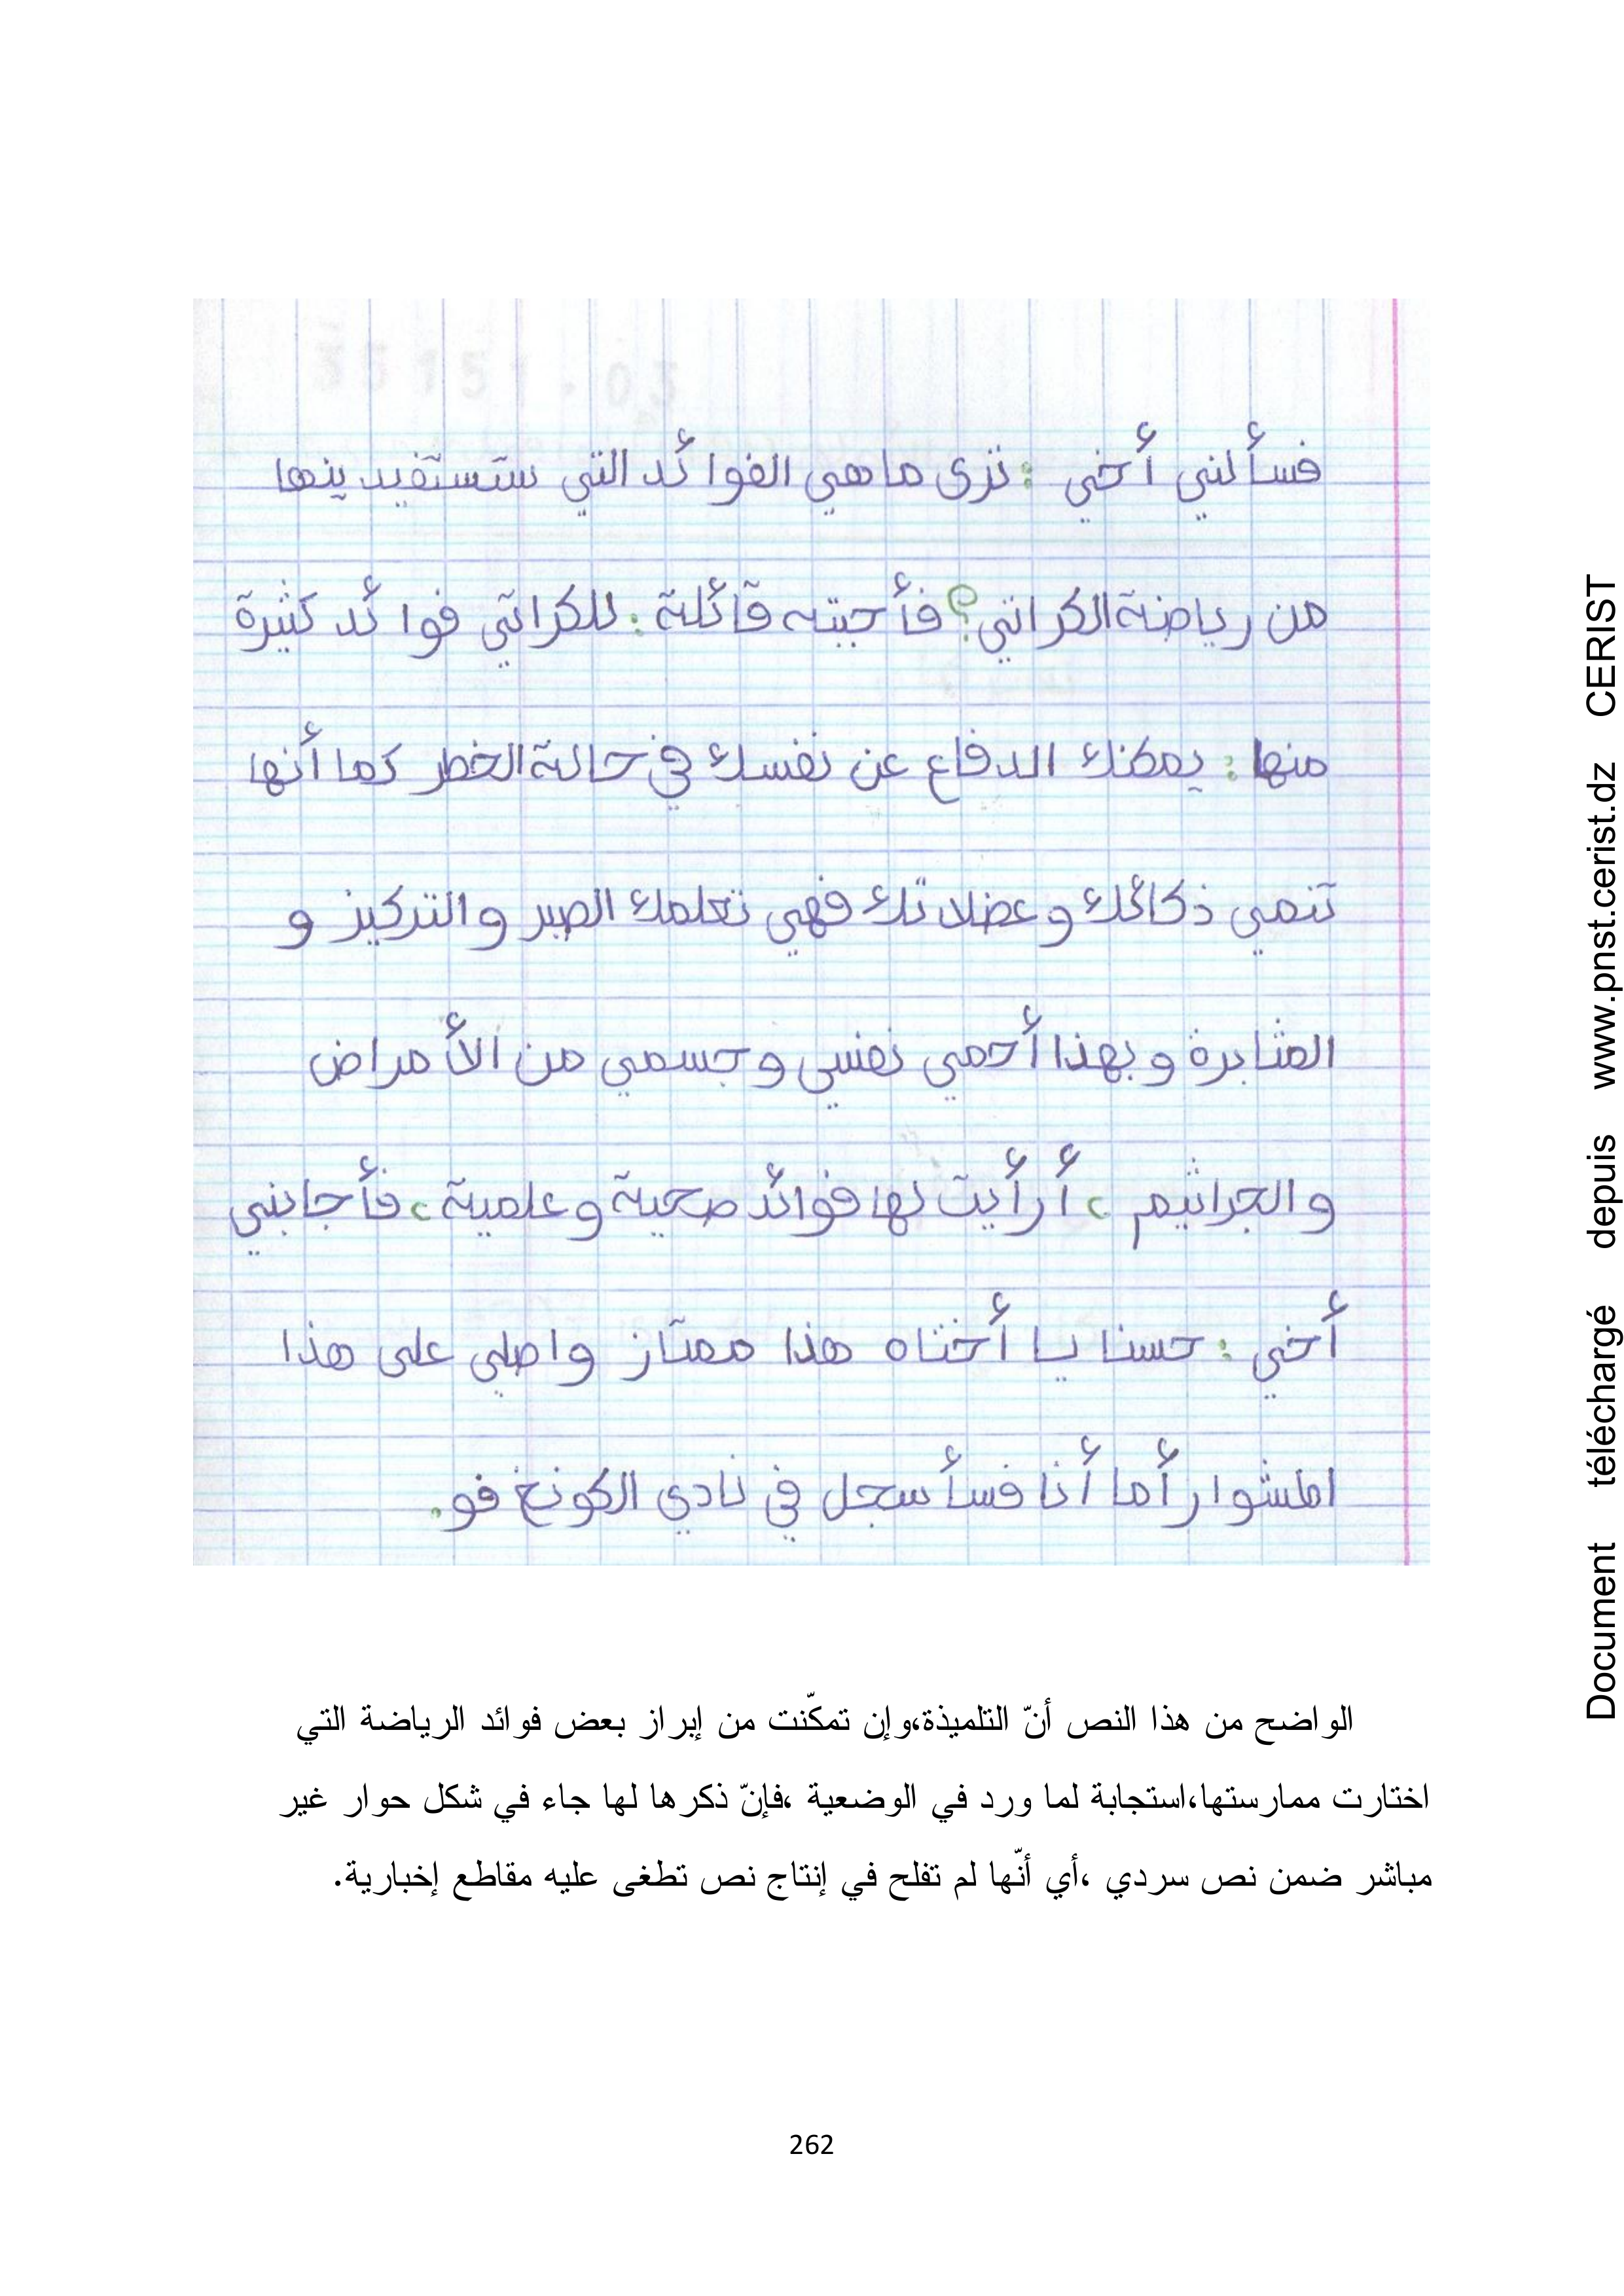 فسألني أخي : ترى ما هي الفوائد التي ستستفيدينها
من رياضة الكراتي؟ فأجبته قائلة : للكراتي فوائد كثيرة
منها : يمكنك الدفاع عن نفسك في حالة الخطر كما أنها
تنمي ذكائك و عضلاتك فهي تعلمك الصبر و التركيز و
المثابرة و بهذا أحمي نفسي و جسمي من الأمراض
و الجراثيم ، أرأيت لها فوائد صحية و علمية ، فأجابني
أخي : حسنا يا أختاه هذا ممتاز واصلي على هذا
المشوار أما أنا فسأسجل في نادي الكونغ فو.
الواضح من هذا النص أنّ التلميذة،وإن تمكّنت من إبراز بعض فوائد الرياضة التي
اختارت ممارستها،استجابة لما ورد في الوضعية ،فإنّ ذكرها لها جاء في شكل حوار غير
مباشر ضمن نص سردي ،أي أنّها لم تفلح في إنتاج نص تطغى عليه مقاطع إخبارية.
262
Document téléchargé depuis www.pnst.cerist.dz CERIST